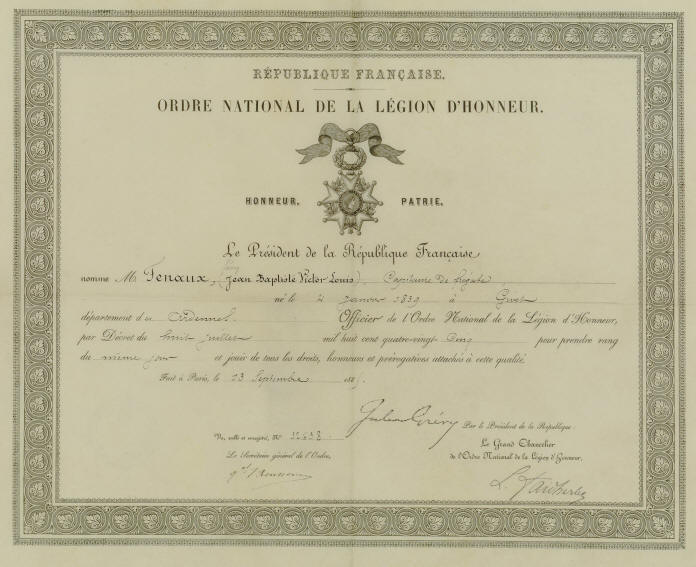 RÉPUBLIQUE FRANÇAISE.
ORDRE NATIONAL DE LA LÉGION D'HONNEUR.
HONNEUR. PATRIE.
Le Président de la République Française
nomme M. Tenaux, (Jean Baptiste Victor Louis) Capitaine de frégate
né le 2 Janvier 1839 à Givet
département des Ardennes Officier de l'Ordre National de la Légion d'Honneur,
par Décret du huit juillet mil huit cent quatre-vingt cinq pour prendre rang
du même jour et jouir de tous les droits, honneurs et prérogatives attachés à cette qualité.
Fait à Paris, le 23 Septembre 188
Jules Grévy
Par le Président de la République:
Vu, scellé et enregistré, No
Le Grand Chancelier
Le Secrétaire général de l'Ordre,
de l'Ordre National de la Légion d'Honneur,
L. Faidherbe